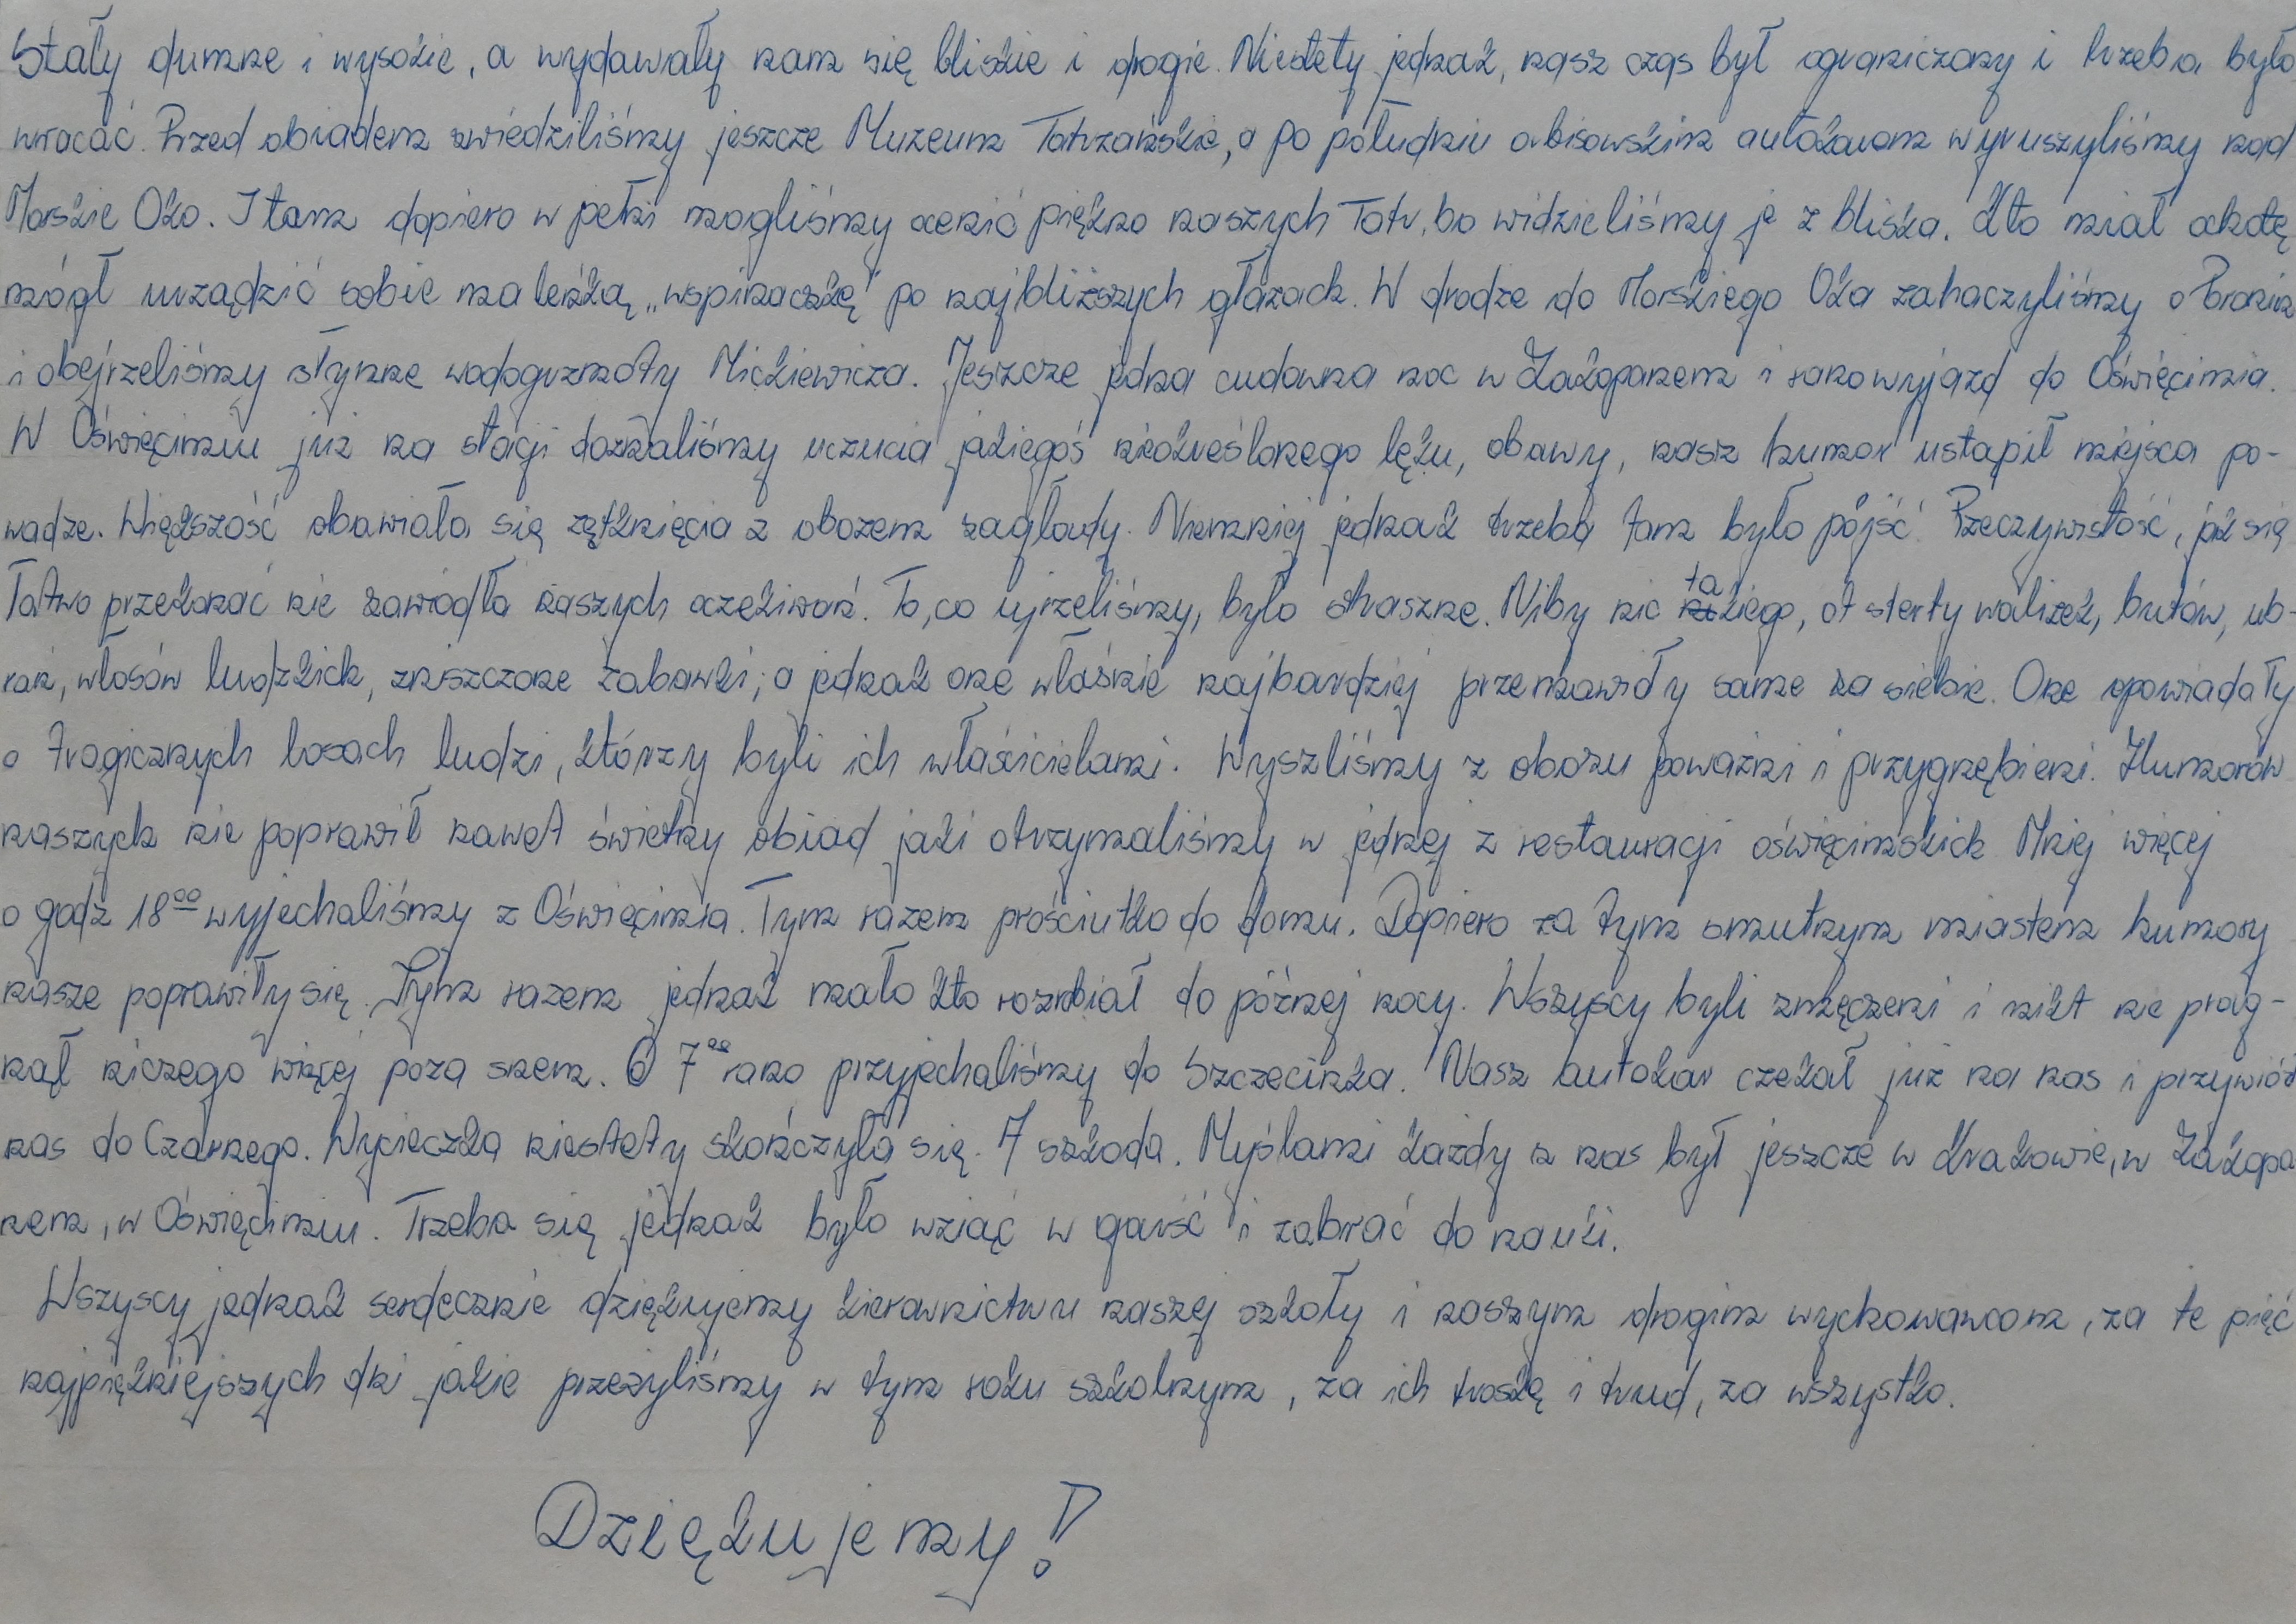 Stały dumne i wysokie, a wydawały nam się bliskie i drogie. Niestety jednak, nasz czas był ograniczony i trzeba było
wracać. Przed obiadem zwiedziliśmy jeszcze Muzeum Tatrzańskie, a po południu orbisowskim autokarem wyruszyliśmy nad
Morskie Oko. I tam dopiero w pełni mogliśmy ocenić piękno naszych Tatr, bo widzieliśmy je z bliska. Kto miał ochotę
mógł urządzić sobie maleńką „wspinaczkę” po najbliższych głazach. W drodze do Morskiego Oka zahaczyliśmy o Poronin
i obejrzeliśmy słynne wodogrzmoty Mickiewicza. Jeszcze jedna cudowna noc w Zakopanem i rano wyjazd do Oświęcimia.
W Oświęcimiu już na stacji doznaliśmy uczucia jakiegoś nieokreślonego lęku, obawy, nasz humor ustąpił miejsca po-
wadze. Większość obawiała się zętknięcia z obozem zagłady. Niemniej jednak trzeba tam było pójść. Rzeczywistość, jak się
łatwo przekonać nie zawiodła naszych oczekiwań. To, co ujrzeliśmy, było straszne. Niby nic takiego, ot sterty walizek, butów, ub-
rań, włosów ludzkich, zniszczone zabawki, a jednak one właśnie najbardziej przemawiały same za siebie. One opowiadały
o tragicznych losach ludzi, którzy byli ich właścicielami. Wyszliśmy z obozu poważni i przygnębieni. Humorów
naszych nie poprawił nawet świetny obiad jaki otrzymaliśmy w jednej z restauracji oświęcimskich. Mniej więcej
o godz 18⁰⁰ wyjechaliśmy z Oświęcimia. Tym razem prościutko do domu. Dopiero za tym smutnym miastem humory
nasze poprawiły się. Tym razem jednak mało kto rozrabiał do późnej nocy. Wszyscy byli zmęczeni i nikt nie prag-
nął niczego więcej poza snem. O 7⁰⁰ rano przyjechaliśmy do Szczecinka. Nasz autokar czekał już na nas i przywiózł
nas do Czarnego. Wycieczka niestety skończyła się. A szkoda. Myślami każdy z nas był jeszcze w Krakowie, w Zakopa
nem, w Oświęcimiu. Trzeba się jednak było wziąć w garść i zabrać do nauki.
Wszyscy jednak serdecznie dziękujemy kierownictwu naszej szkoły i naszym drogim wychowawcom, za te pięć
najpiękniejszych dni jakie przeżyliśmy w tym roku szkolnym, za ich troskę i trud, za wszystko.
Dziękujemy!